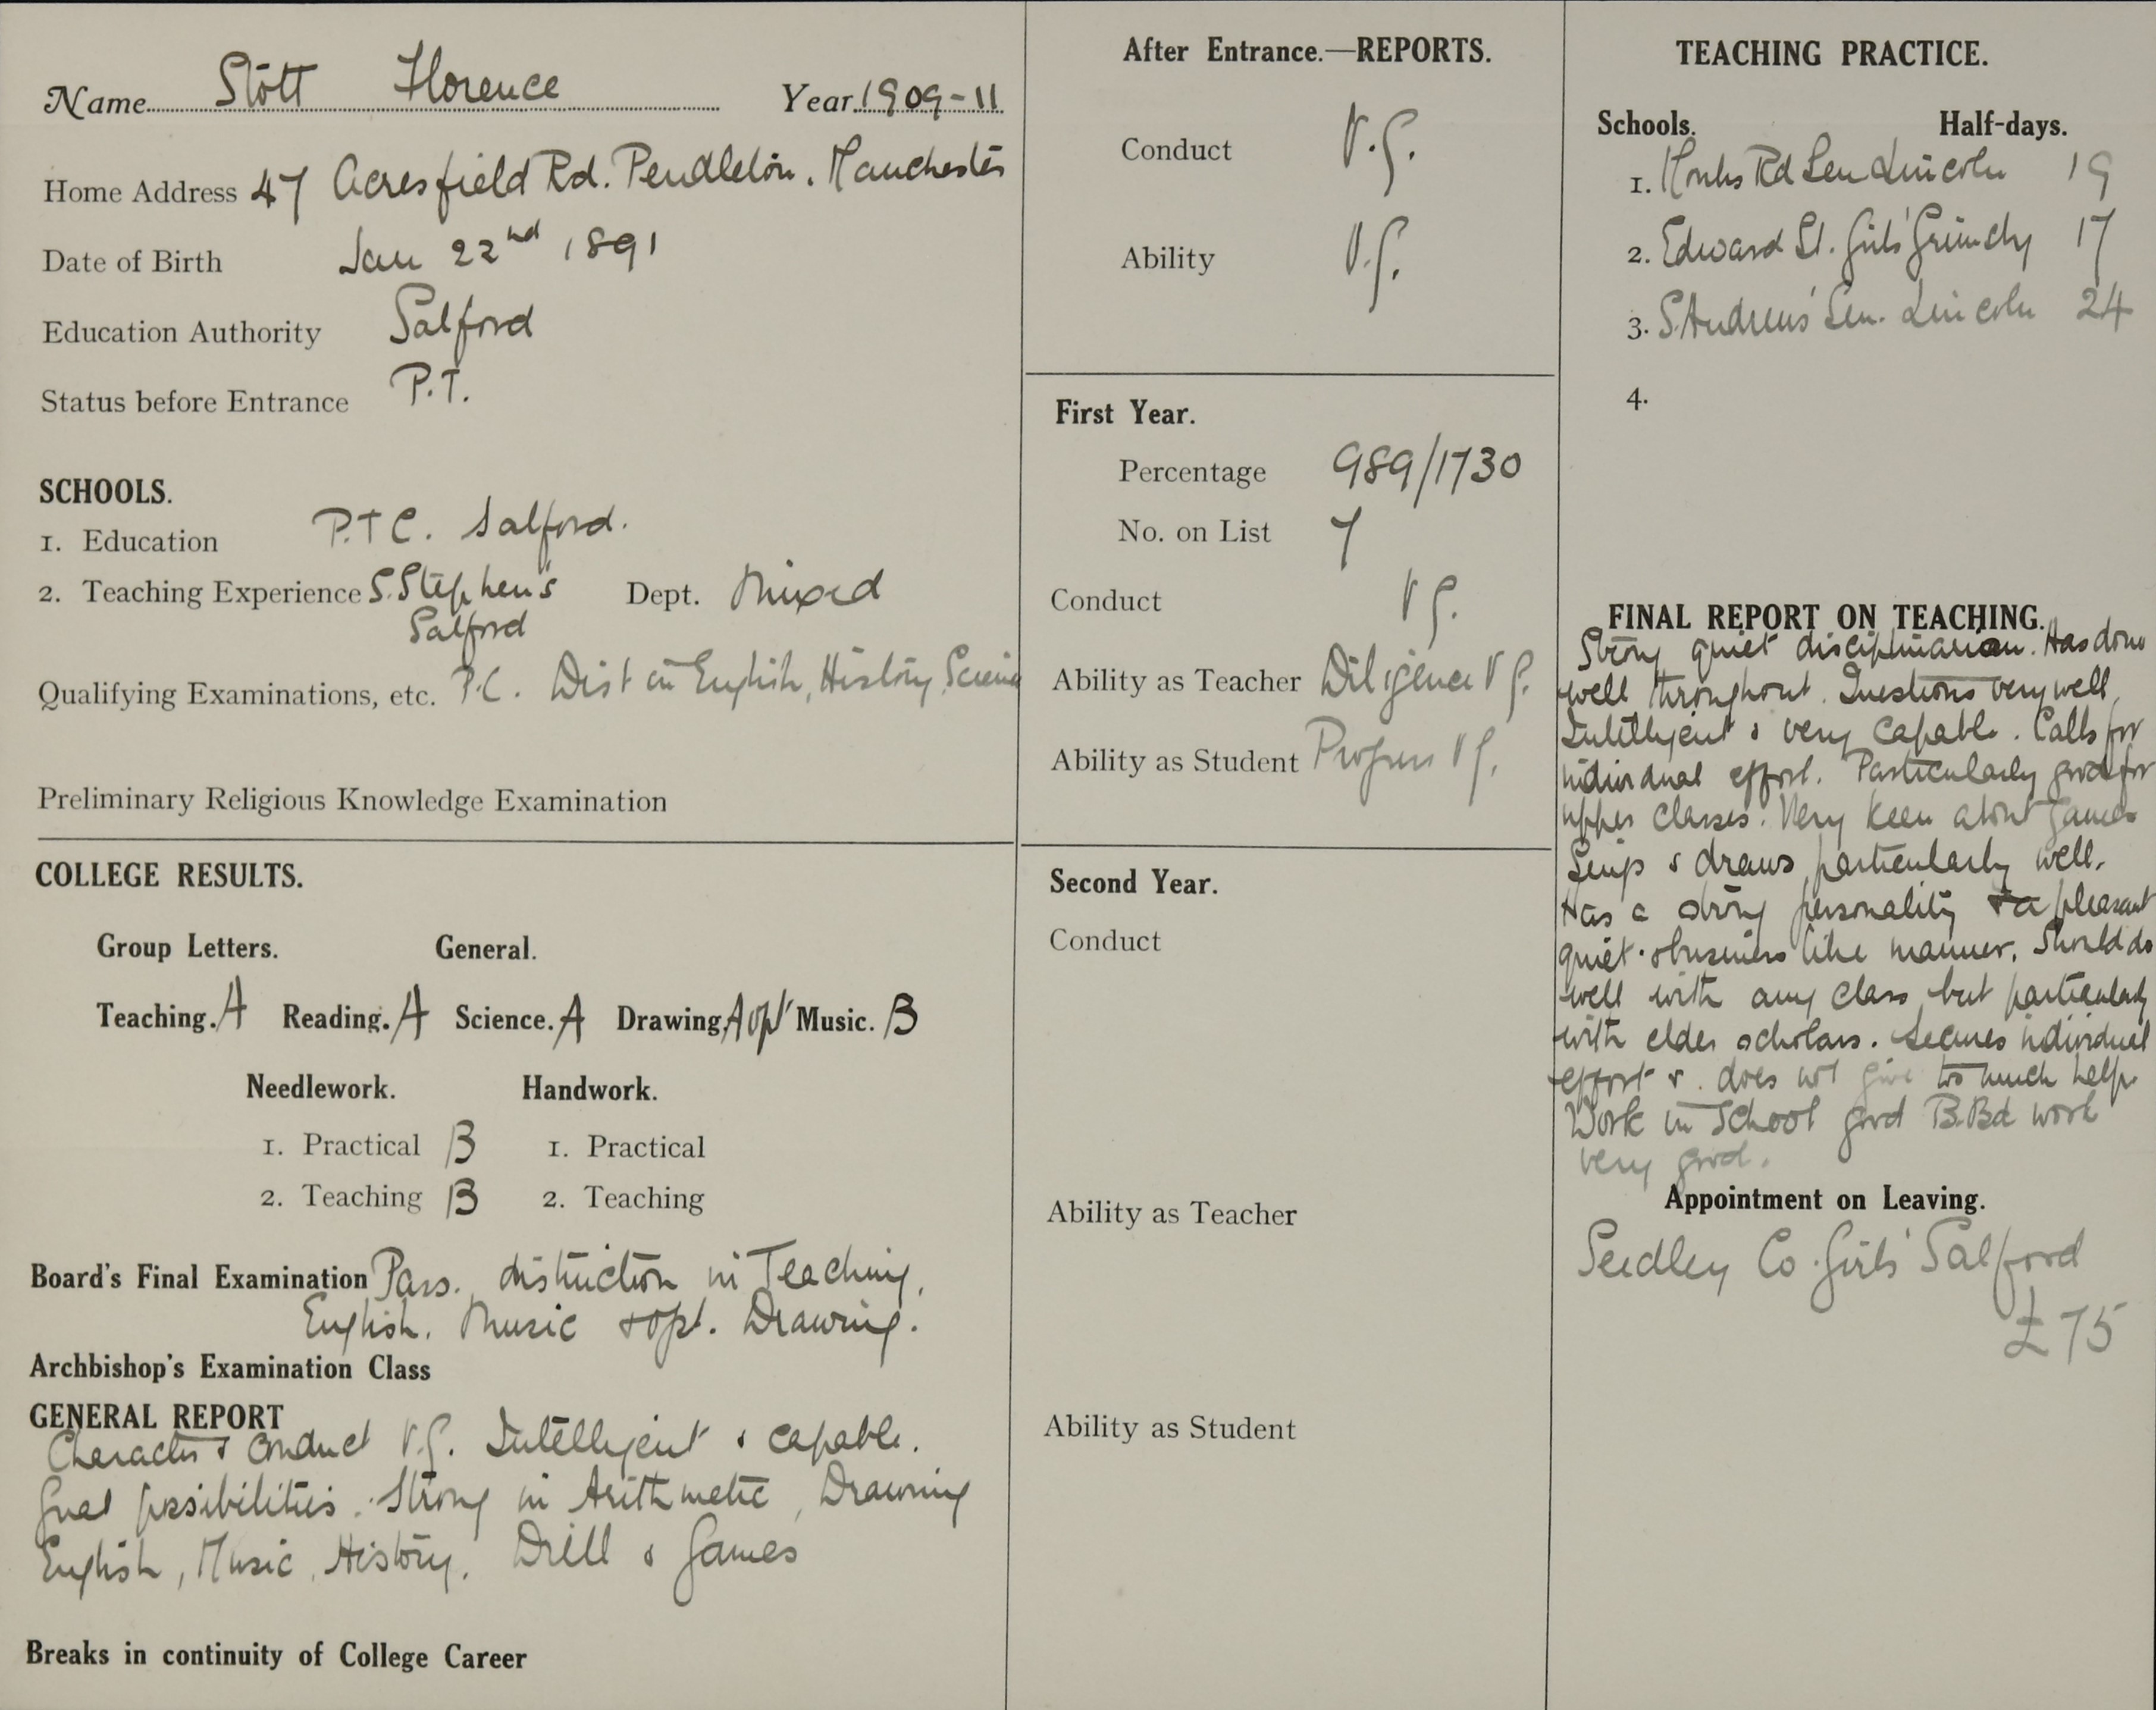 Name Stott Florence Year 1909-11
Home Address 47 Acresfield Rd. Pendleton. Manchester
Date of Birth Jan 22nd 1891
Education Authority Salford
Status before Entrance P.T.
SCHOOLS.
1. Education P.T.C. Salford.
2. Teaching Experience S. Stephen's Dept. Mixed
Salford
Qualifying Examinations, etc. P.C. Dist in English, History, Science
Preliminary Religious Knowledge Examination
COLLEGE RESULTS.
Group Letters. General.
Teaching. A Reading. A Science. A Drawing. A opt Music. B
Needlework. Handwork.
1. Practical B 1. Practical
2. Teaching B 2. Teaching
Board's Final Examination Pass. distinction in Teaching,
English. Music & opt. Drawing.
Archbishop's Examination Class
GENERAL REPORT
Character & conduct V.G. Intelligent & capable.
Great possibilities. Strong in Arithmetic, Drawing
English, Music, History. Drill & Games
Breaks in continuity of College Career
After Entrance.—REPORTS.
Conduct V.G.
Ability V.G.
First Year.
Percentage 989/1730
No. on List 7
Conduct V G.
Ability as Teacher Diligence V G.
Ability as Student Progress V G.
Second Year.
Conduct
Ability as Teacher
Ability as Student
TEACHING PRACTICE.
Schools. Half-days.
1. Monks Rd Sen Lincoln 19
2. Edward St. Girls' Grimsby 17
3. S. Andrews' Sen. Lincoln 24
4.
FINAL REPORT ON TEACHING.
Strong quiet disciplinarian. Has done
well throughout. Questions very well,
Intelligent & very capable. Calls for
individual effort. Particularly good for
upper classes. Very keen about games
Sings & draws particularly well.
Has a strong personality & a pleasant
quiet & business like manner. Should do
well with any class but particularly
with elder scholars. Secures individual
effort & does not give too much help.
Work in School good B.Bd work
very good.
Appointment on Leaving.
Seedley Co. Girls' Salford
£75